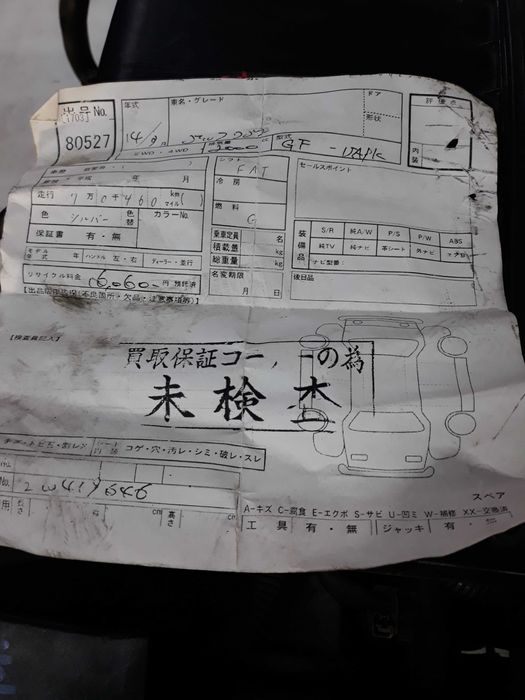 出品 No.
[1703]
80527
年式
14/9月
車名・グレード
ドア
形状
評価点
内装
2WD・4WD
排気量
型式
GF-
車歴
年 月
走行 7万0千460 km マイル ( )
色 シルバー 色替 カラーNo.
保証書 有・無
モデル年式 年 ハンドル 左・右 ディーラー・並行
リサイクル料金 円 預託済
シフト FAT
冷房
燃料 G
乗車定員 名
積載量 kg
総重量 kg
名変期限
月 日
セールスポイント
装備品
S/R 純A/W P/S P/W ABS
純TV 純ナビ 革シート 外ナビ エアB
ナビ型番:
後日品
【検査員記入】
買取保証コー の為
未検査
シート内装 コゲ・穴・汚レ・シミ・破レ・スレ
No.
cm
高さ
cm
スペア
A-キズ C-腐食 E-エクボ S-サビ U-凹ミ W-補修 XX-交換済
工具 有・無 ジャッキ 有・